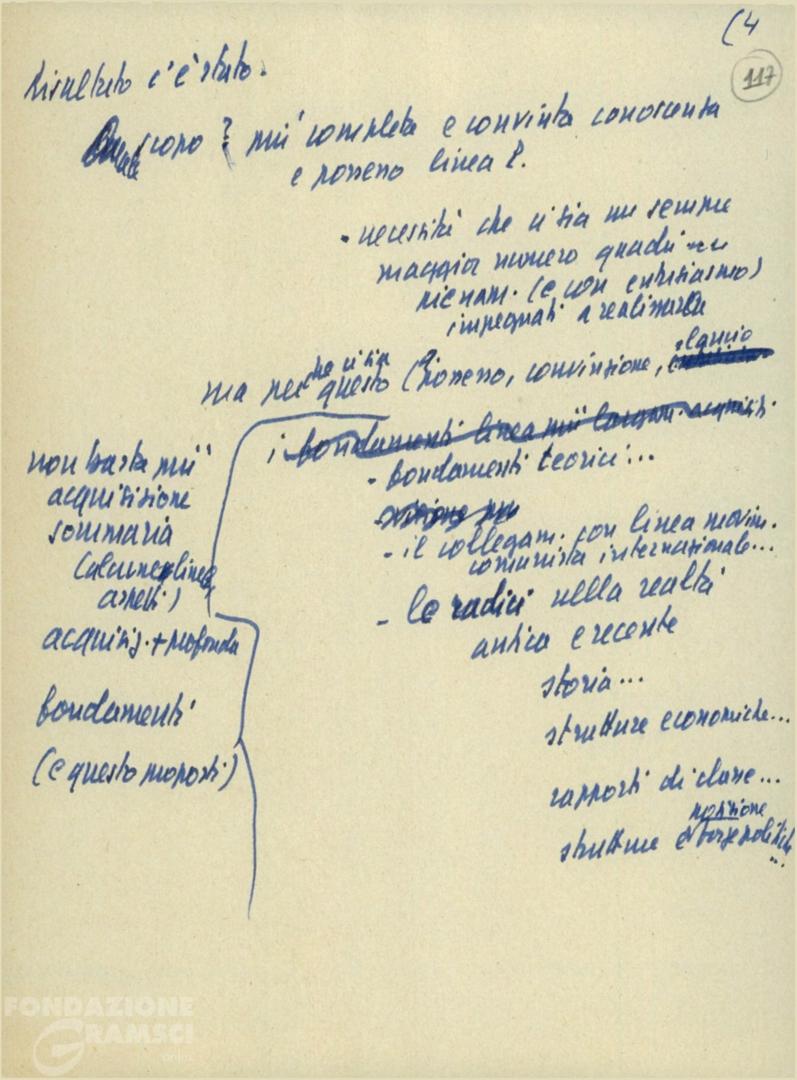 (4
117
Risultato c'è stato.
scopo? più completa e convinta conoscenza
e possesso linea P.
- necessità che ci sia un sempre
maggior numero quadri
pienam. (e con entusiasmo)
impegnati a realizzarla
ma per questo (possesso, convinzione, slancio
che ci sia
i fondamenti linea più largam. acquisiti
- fondamenti teorici...
- il collegam. con linea movim.
comunista internazionale...
- le radici nella realtà
antica e recente
storia...
strutture economiche...
rapporti di classe...
posizione
strutture e forze politiche
...
non basta più
acquisizione
sommaria
(alcune linee
aspetti)
acquisiz. + profonda
fondamenti
(e questo proposti)
FONDAZIONE
GRAMSCI
onlus